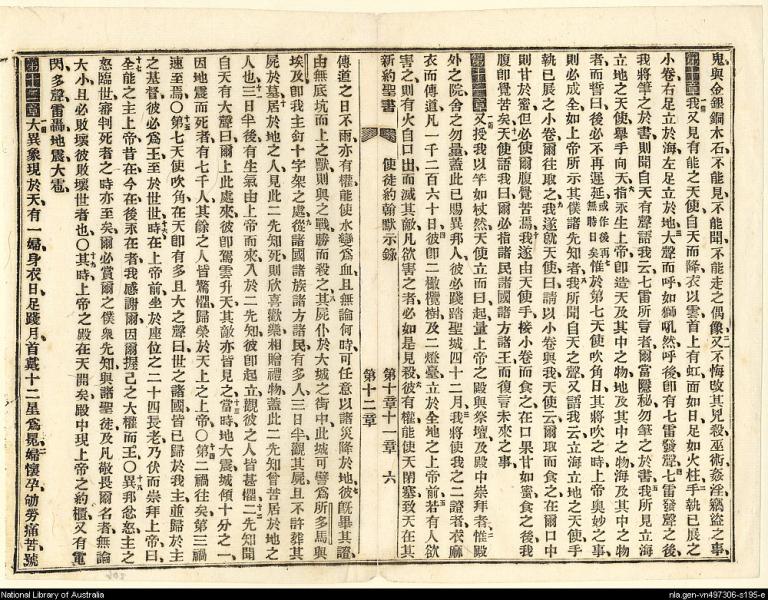 鬼與金銀銅木石不能見不能聞不能走之偶像又不悔改其兇殺巫術姦淫竊盜之事
第十章 我又見有能之天使自天而降衣以雲首上有虹面如日足如火柱手執已展之
小卷右足立於海左足立於地大聲而呼如獅吼然呼後即有七雷發聲七雷發聲之後
我將筆之於書則聞自天有聲語我云七雷所言者爾當隱秘勿筆之於書我所見立海
立地之天使舉手向天指永生上帝即造天及其中之物地及其中之物海及其中之物
者而誓曰後必不再遲延或作後再無時日矣惟於第七天使吹角日其將吹之時上帝奧妙之事
則必成全如上帝所示其僕諸先知者我所聞自天之聲又語我云立海立地之天使手
執已展之小卷爾往取之我遂就天使曰請以小卷與我天使云爾取而食之在爾口中
則甘於蜜但必使爾腹覺苦焉我遂由天使手接小卷而食之在口果甘如蜜食之後我
腹即覺苦矣天使語我曰爾必指諸民諸國諸方諸王而復言未來之事
第十一章 又授我以竿如杖然天使立而曰起量上帝之殿與祭壇及殿中崇拜者惟殿
外之院舍之勿量蓋此已賜異邦人彼必踐踏聖城四十二月我將使我之二證者衣麻
衣而傳道凡一千二百六十日彼即二橄欖樹及二燈臺立於全地之上帝前若有人欲
害之則有火自口出而滅其敵凡欲害之者必如是見殺彼有權能使天閉塞致天在其
新約聖書 使徒約翰默示錄 第十章十一章 六
第十二章
傳道之日不雨亦有權能使水變爲血且無論何時可任意以諸災降於地彼既畢其證
由無底坑而上之獸則與之戰勝而殺之其屍仆於大城之街中此城可譬爲所多馬與
埃及即我主釘十字架之處從諸國諸族諸方諸民有多人三日半觀其屍且不許葬其
屍於墓居於地之人見此二先知死則欣喜歡樂相贈禮物蓋此二先知曾苦居於地之
人也三日半後有生氣由上帝而來入於二先知彼即起立觀彼之人皆甚懼二先知聞
自天有大聲曰爾上此處來彼即駕雲升天其敵亦皆見之當時地大震城傾十分之一
因地震而死者有七千人其餘之人皆驚懼歸榮於天上之上帝〇第二禍往矣第三禍
速至焉〇第七天使吹角在天即有多且大之聲曰世之諸國皆已歸於我主並歸於主
之基督彼必爲王至於世世時在上帝前坐於座位之二十四長老乃伏而崇拜上帝曰
全能之主上帝昔在今在後永在者我感謝爾因爾握己之大權而王〇異邦忿怒主之
怒臨世審判死者之時亦至矣爾必賞爾之僕衆先知與諸聖徒及凡敬畏爾名者無論
大小且必敗壞彼敗壞世者也〇其時上帝之殿在天開矣殿中現上帝之約櫃又有電
閃多聲雷轟地震大雹
第十二章 大異象現於天有一婦身衣日足踐月首戴十二星爲冕婦懷孕劬勞痛苦號
National Library of Australia
nla.gen-vn497306-s195-e